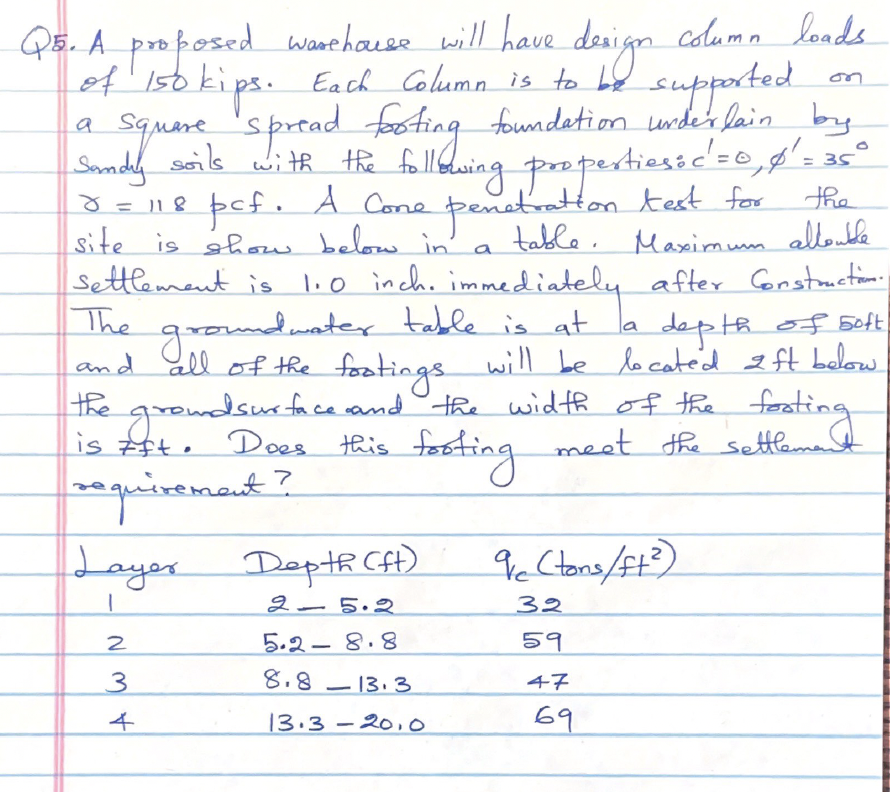 Q5. A proposed warehouse will have design column loads
of 150 kips. Each Column is to be supported on
a square spread footing foundation underlain by
Sandy soils with the following properties: c'=0, φ'= 35°
γ = 118 pcf. A Cone penetration test for the
site is show below in a table. Maximum allouble
settlement is 1.0 inch. immediately after Construction.
The groundwater table is at a depth of 50ft
and all of the footings will be located 2 ft below
the groundsurface and the width of the footing
is 7ft. Does this footing meet the settlement
requirement?
Layer Depth (ft) qc (tons/ft²)
1 2 – 5.2 32
2 5.2 – 8.8 59
3 8.8 – 13.3 47
4 13.3 – 20.0 69